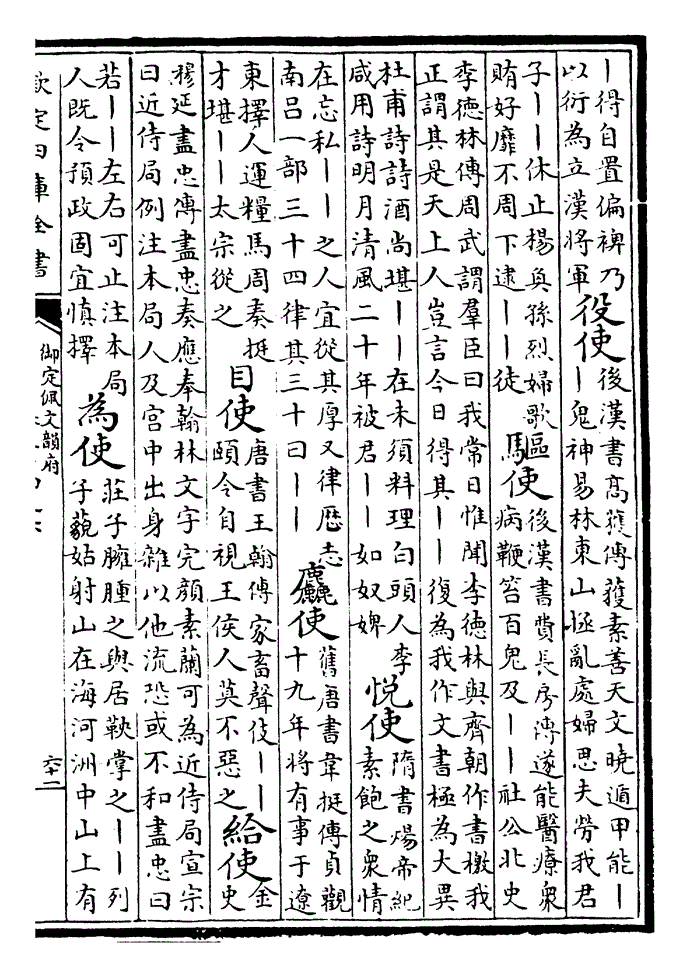 丨得自置偏裨乃
以衍為立漢將軍
役使
後漢書髙獲傳獲素善天文曉遁甲能丨
丨鬼神易林東山拯亂處婦思夫勞我君
子丨丨休止楊奐孫烈婦歌
賄好靡不周下逮丨丨徒
驅使
後漢書費長房傳遂能醫療衆
病鞭笞百鬼及丨丨社公北史
李德林傳周武謂羣臣曰我常日惟聞李德林與齊朝作書檄我
正謂其是天上人豈言今日得其丨丨復為我作文書極為大異
杜甫詩詩酒尚堪丨丨在未須料理白頭人李
咸用詩明月清風二十年被君丨丨如奴婢
悅使
隋書煬帝紀
素飽之衆情
在忘私丨丨之人宜從其厚又律歴志
南吕一部三十四律其三十曰丨丨
麤使
舊唐書韋挺傳貞觀
十九年將有事于遼
東擇人運糧馬周奏挺
才堪丨丨太宗從之
目使
唐書王翰傳家畜聲伎丨丨
頤令自視王侯人莫不惡之
給使
金
史
穆延盡忠傳盡忠奏應奉翰林文字完顔素蘭可為近侍局宣宗
曰近侍局例注本局人及宫中出身雜以他流恐或不和盡忠曰
若丨丨左右可止注本局
人既令預政固宜慎擇
為使
莊子臃腫之與居鞅掌之丨丨列
子藐姑射山在海河洲中山上有
欽定四庫全書
御定佩文韻府
六十一